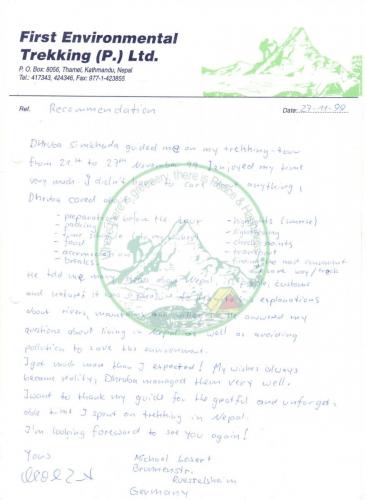 First Environmental
Trekking (P.) Ltd.
P. O. Box: 8056, Thamel, Kathmandu, Nepal
Tel.: 417343, 424346, Fax: 977-1-423855
Ref. Recommendation
Date: 27-11-99
Dhruba Simkhada guided me on my trekking-tour
from 21th to 27th November 99. I enjoyed my time
very much. I didn't have to care about anything,
Dhruba cared about
- preparations before the tour
- packing
- food
- breaks
- highlights (sunrise)
- sightseeing
- check points
- way/track
He told me many about Nepal, people, customs
and nature, it was explanations
about rivers, mountains He answered my
questions about living in Nepal as well as avoiding
pollution to save the environment.
I got much more than I expected! My wishes always
became reality, Dhruba managed them very well.
I want to thank my guide for the greatful and unforget-
able time I spent on trekking in Nepal.
I'm looking foreward to see you again!
Yours
Michael
Germany